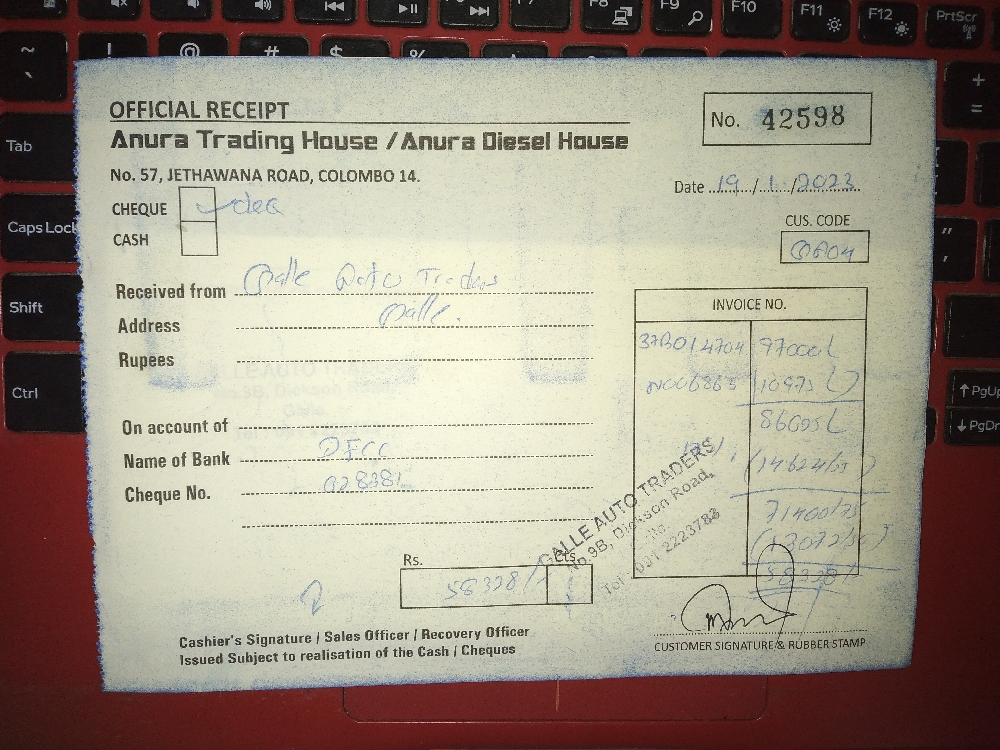 OFFICIAL RECEIPT
No. 42598
Anura Trading House / Anura Diesel House
No. 57, JETHAWANA ROAD, COLOMBO 14.
Date 19/1/2023
CHEQUE
CASH
CUS. CODE
Received from Galle Auto Traders
Address Galle.
Rupees
On account of
Name of Bank DFCC
Cheque No. 028381
INVOICE NO.
37B014704 97000
N006865 10975
86025
(14624/25)
71400/75
58328/
GALLE AUTO TRADERS
No.9B, Dickson Road,
Galle.
Tel : 091 2223783
Rs. Cts.
58328/
Cashier's Signature / Sales Officer / Recovery Officer
Issued Subject to realisation of the Cash / Cheques
CUSTOMER SIGNATURE & RUBBER STAMP
~
`
!
@
#
$
%
Tab
Caps Lock
Shift
Ctrl
F8
F9
F10
F11
F12
PrtScr
+
=
"
,
PgUp
PgDn